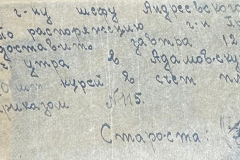 г-ну шефу Андреевского
по распоряжению г-н
доставить завтра 12
утра в Адамовску
кур в счет
приказом №115.
Староста: